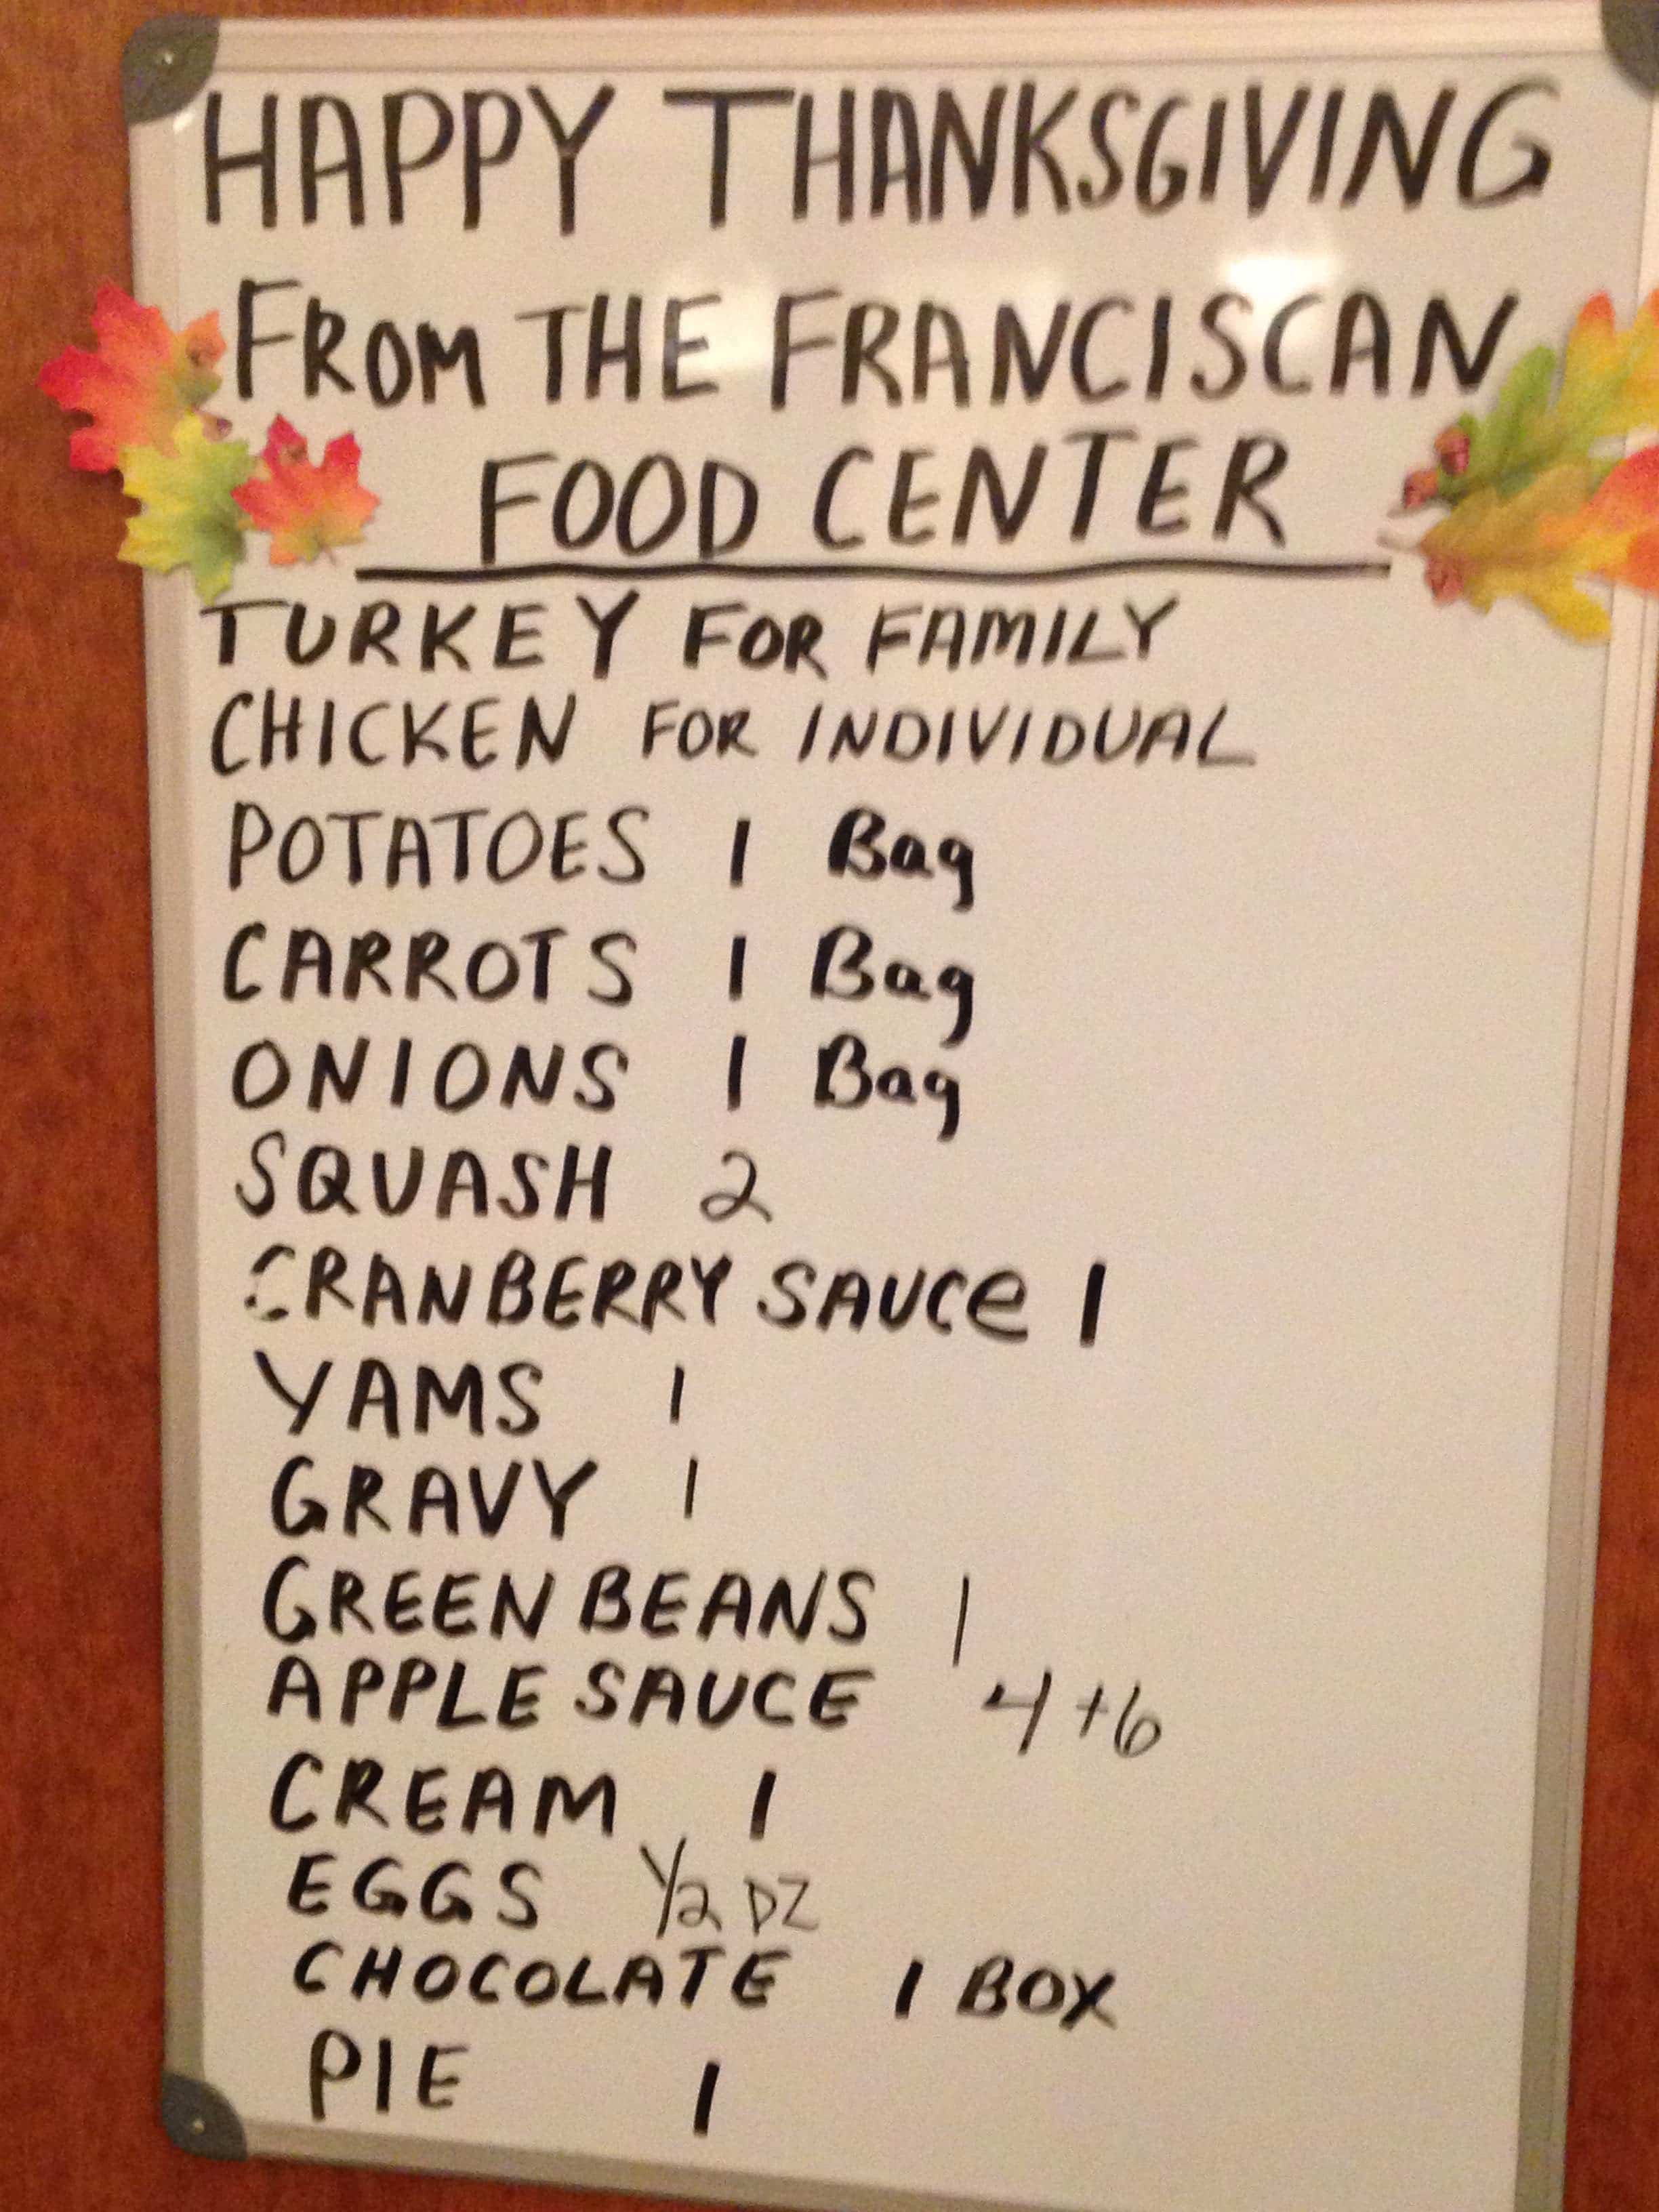 HAPPY THANKSGIVING
FROM THE FRANCISCAN
FOOD CENTER
TURKEY FOR FAMILY
CHICKEN FOR INDIVIDUAL
POTATOES 1 Bag
CARROTS 1 Bag
ONIONS 1 Bag
SQUASH 2
CRANBERRY SAUCe 1
YAMS 1
GRAVY 1
GREEN BEANS 1
APPLE SAUCE 4+6
CREAM 1
EGGS 1/2 DZ
CHOCOLATE 1 BOX
PIE 1